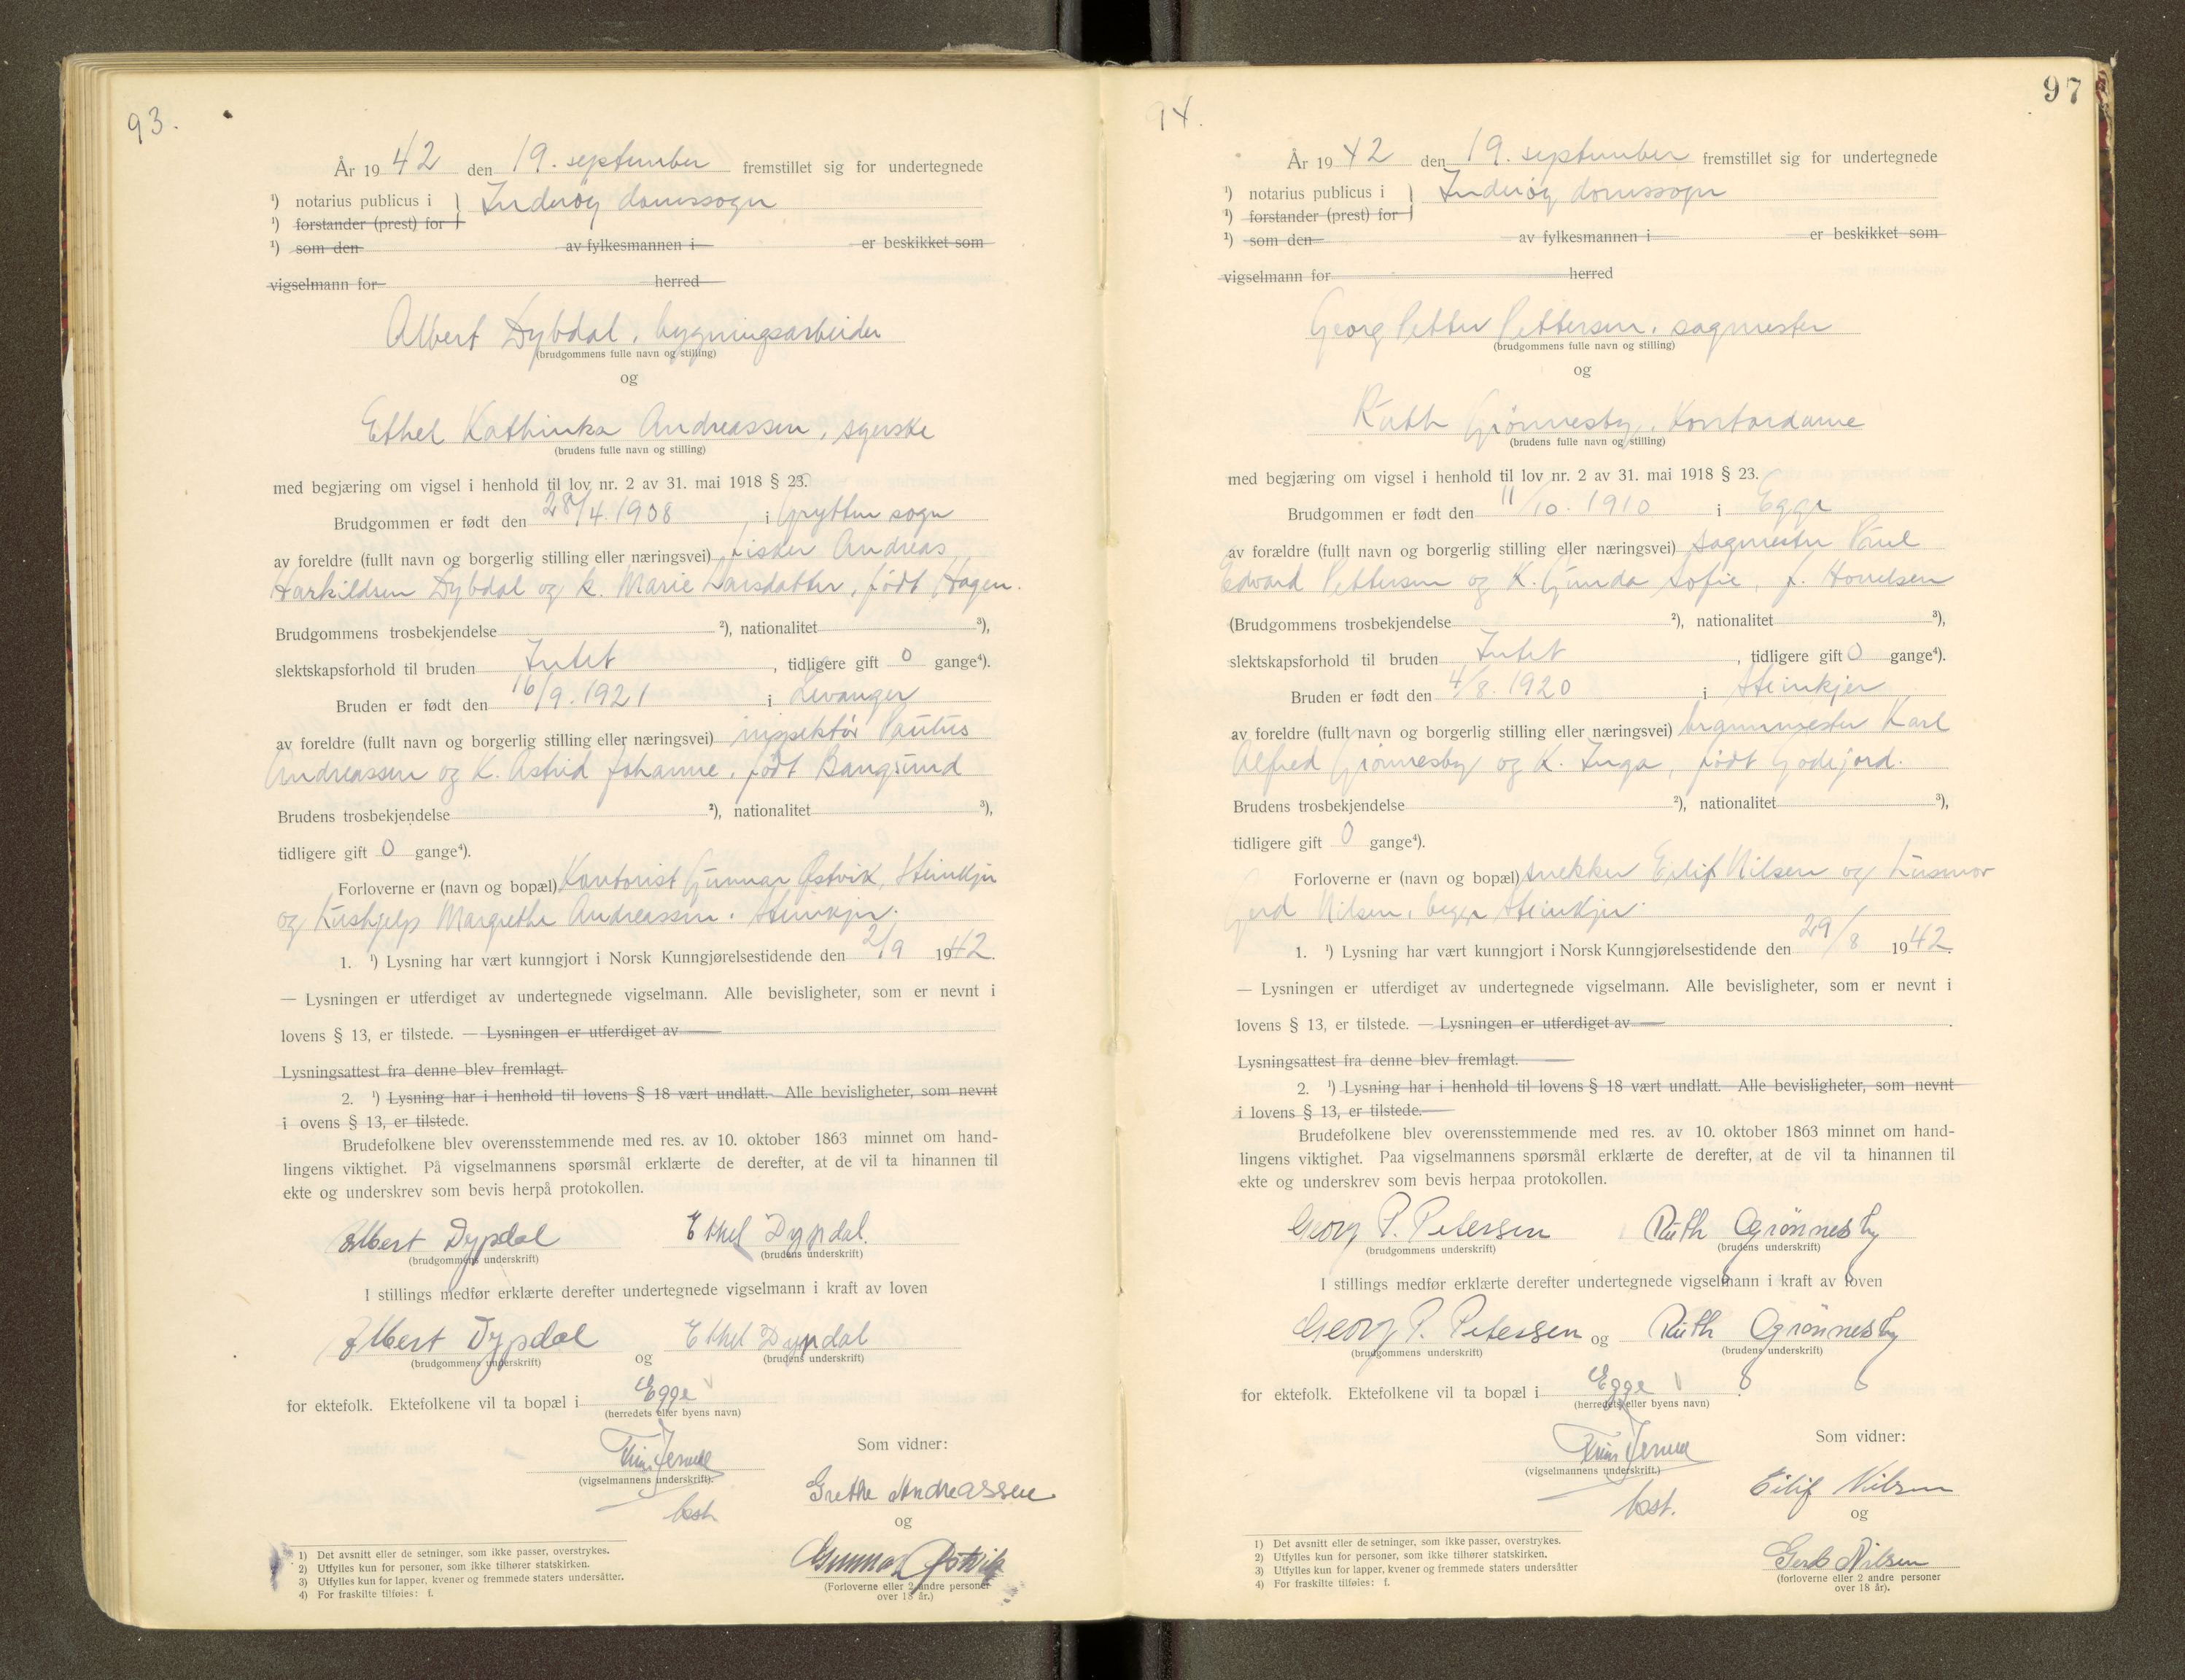 93.
År 1942 den 19. september fremstillet sig for undertegnede
¹) notarius publicus i } Inderøy domssogn
¹) forstander (prest) for
¹) som den av fylkesmannen i er beskikket som
vigselmann for herred
Albert Dybdal, bygningsarbeider
(brudgommens fulle navn og stilling)
og
Ethel Kathinka Andreassen, syerske
(brudens fulle navn og stilling)
med begjæring om vigsel i henhold til lov nr. 2 av 31. mai 1918 § 23.
Brudgommen er født den 28/4. 1908, i Grytten sogn
av foreldre (fullt navn og borgerlig stilling eller næringsvei) fisker Andreas
Harkildsen Dybdal og k. Marie Larsdatter, født Hagen.
Brudgommens trosbekjendelse ²), nationalitet ³),
slektskapsforhold til bruden Intet, tidligere gift 0 gange⁴).
Bruden er født den 16/9. 1921 i Levanger
av foreldre (fullt navn og borgerlig stilling eller næringsvei) inspektør Paulus
Andreassen og k. Astrid Johanne, født Bangsund
Brudens trosbekjendelse ²), nationalitet ³),
tidligere gift 0 gange⁴).
Forloverne er (navn og bopæl) Kontorist Gunnar Østvik, Steinkjer
og hushjelp Margrethe Andreassen, Steinkjer.
1. ¹) Lysning har vært kunngjort i Norsk Kunngjørelsestidende den 2/9 1942.
— Lysningen er utferdiget av undertegnede vigselmann. Alle bevisligheter, som er nevnt i
lovens § 13, er tilstede. — Lysningen er utferdiget av
Lysningsattest fra denne blev fremlagt.
2. ¹) Lysning har i henhold til lovens § 18 vært undlatt. Alle bevisligheter, som nevnt
i ovens § 13, er tilstede.
Brudefolkene blev overensstemmende med res. av 10. oktober 1863 minnet om hand-
lingens viktighet. På vigselmannens spørsmål erklærte de derefter, at de vil ta hinannen til
ekte og underskrev som bevis herpå protokollen.
Albert Dypdal Ethel Dypdal.
(brudgommens underskrift) (brudens underskrift)
I stillings medfør erklærte derefter undertegnede vigselmann i kraft av loven
Albert Dypdal og Ethel Dypdal
(brudgommens underskrift) (brudens underskrift)
for ektefolk. Ektefolkene vil ta bopæl i Egge
(herredets eller byens navn)
Som vidner:
(vigselmannens underskrift).
Grethe Andreassen
bst.
og
Gunnar Østvik
(Forloverne eller 2 andre personer
over 18 år.)
1) Det avsnitt eller de setninger, som ikke passer, overstrykes.
2) Utfylles kun for personer, som ikke tilhører statskirken.
3) Utfylles kun for lapper, kvener og fremmede staters undersåtter.
4) For fraskilte tilføies: f.
94.
97
År 1942 den 19. september fremstillet sig for undertegnede
¹) notarius publicus i } Inderøy domssogn
¹) forstander (prest) for
¹) som den av fylkesmannen i er beskikket som
vigselmann for herred
Georg Petter Pettersen, sagmester
(brudgommens fulle navn og stilling)
og
Ruth Grønnesby, kontordame
(brudens fulle navn og stilling)
med begjæring om vigsel i henhold til lov nr. 2 av 31. mai 1918 § 23.
Brudgommen er født den 11/10. 1910 i Egge
av forældre (fullt navn og borgerlig stilling eller næringsvei) sagmester Paul
Edvard Pettersen og k. Gunda Sofie, f. Hovelsen
(Brudgommens trosbekjendelse ²), nationalitet ³),
slektskapsforhold til bruden Intet, tidligere gift 0 gange⁴).
Bruden er født den 4/8. 1920 i Steinkjer
av foreldre (fullt navn og borgerlig stilling eller næringsvei) brannmester Karl
Alfred Grønnesby og k. Inga, født Godejord.
Brudens trosbekjendelse ²), nationalitet ³),
tidligere gift 0 gange⁴).
Forloverne er (navn og bopæl) snekker Eilif Nilsen og husmor
Gerd Nilsen, begge Steinkjer.
1. ¹) Lysning har vært kunngjort i Norsk Kunngjørelsestidende den 29/8 1942.
— Lysningen er utferdiget av undertegnede vigselmann. Alle bevisligheter, som er nevnt i
lovens § 13, er tilstede. — Lysningen er utferdiget av
Lysningsattest fra denne blev fremlagt.
2. ¹) Lysning har i henhold til lovens § 18 vært undlatt. Alle bevisligheter, som nevnt
i lovens § 13, er tilstede.
Brudefolkene blev overensstemmende med res. av 10. oktober 1863 minnet om hand-
lingens viktighet. Paa vigselmannens spørsmål erklærte de derefter, at de vil ta hinannen til
ekte og underskrev som bevis herpaa protokollen.
Georg P. Petersen Ruth Grønnesby
(brudgommens underskrift) (brudens underskrift)
I stillings medfør erklærte derefter undertegnede vigselmann i kraft av loven
Georg P. Petersen og Ruth Grønnesby
(brudgommens underskrift) (brudens underskrift)
for ektefolk. Ektefolkene vil ta bopæl i Egge
(herredets eller byens navn)
Som vidner:
(vigselmannens underskrift.)
Eilif Nilsen
bst.
og
Gerd Nilsen
(forloverne eller 2 andre personer
over 18 år).
1) Det avsnitt eller de setninger, som ikke passer, overstrykes.
2) Utfylles kun for personer, som ikke tilhører statskirken.
3) Utfylles kun for lapper, kvener og fremmede staters undersåtter
4) For fraskilte tilføies: f.